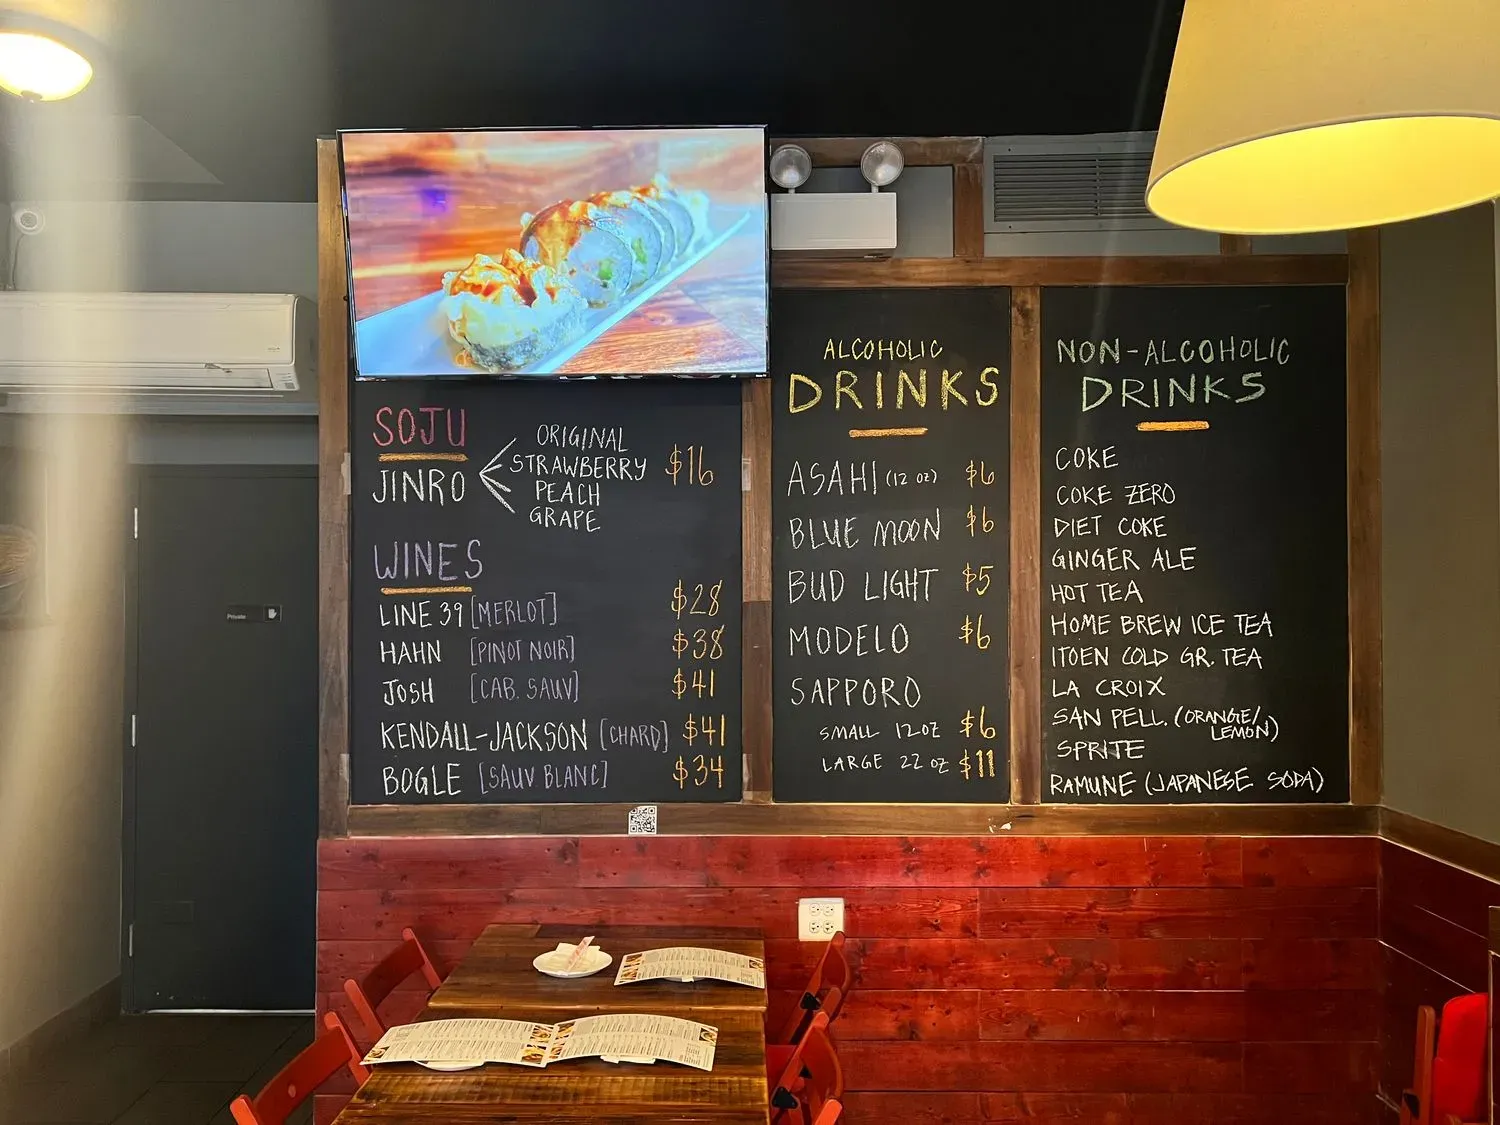 SOJU
JINRO
ORIGINAL
STRAWBERRY
PEACH
GRAPE
$16
WINES
LINE 39 [MERLOT] $28
HAHN [PINOT NOIR] $38
JOSH [CAB. SAUV] $41
KENDALL-JACKSON [CHARD] $41
BOGLE [SAUV BLANC] $34
ALCOHOLIC
DRINKS
ASAHI (12 OZ) $6
BLUE MOON $6
BUD LIGHT $5
MODELO $6
SAPPORO
SMALL 12OZ $6
LARGE 22 OZ $11
NON-ALCOHOLIC
DRINKS
COKE
COKE ZERO
DIET COKE
GINGER ALE
HOT TEA
HOME BREW ICE TEA
ITOEN COLD GR. TEA
LA CROIX
SAN PELL. (ORANGE/
LEMON)
SPRITE
RAMUNE (JAPANESE SODA)
Private